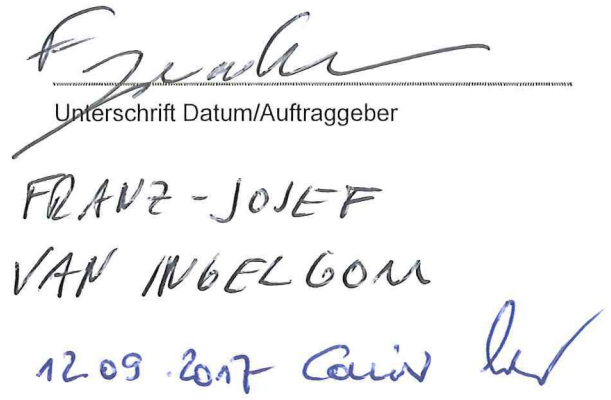 Unterschrift Datum/Auftraggeber
FRANZ-JOSEF
VAN INGELGOM
12.09.2017